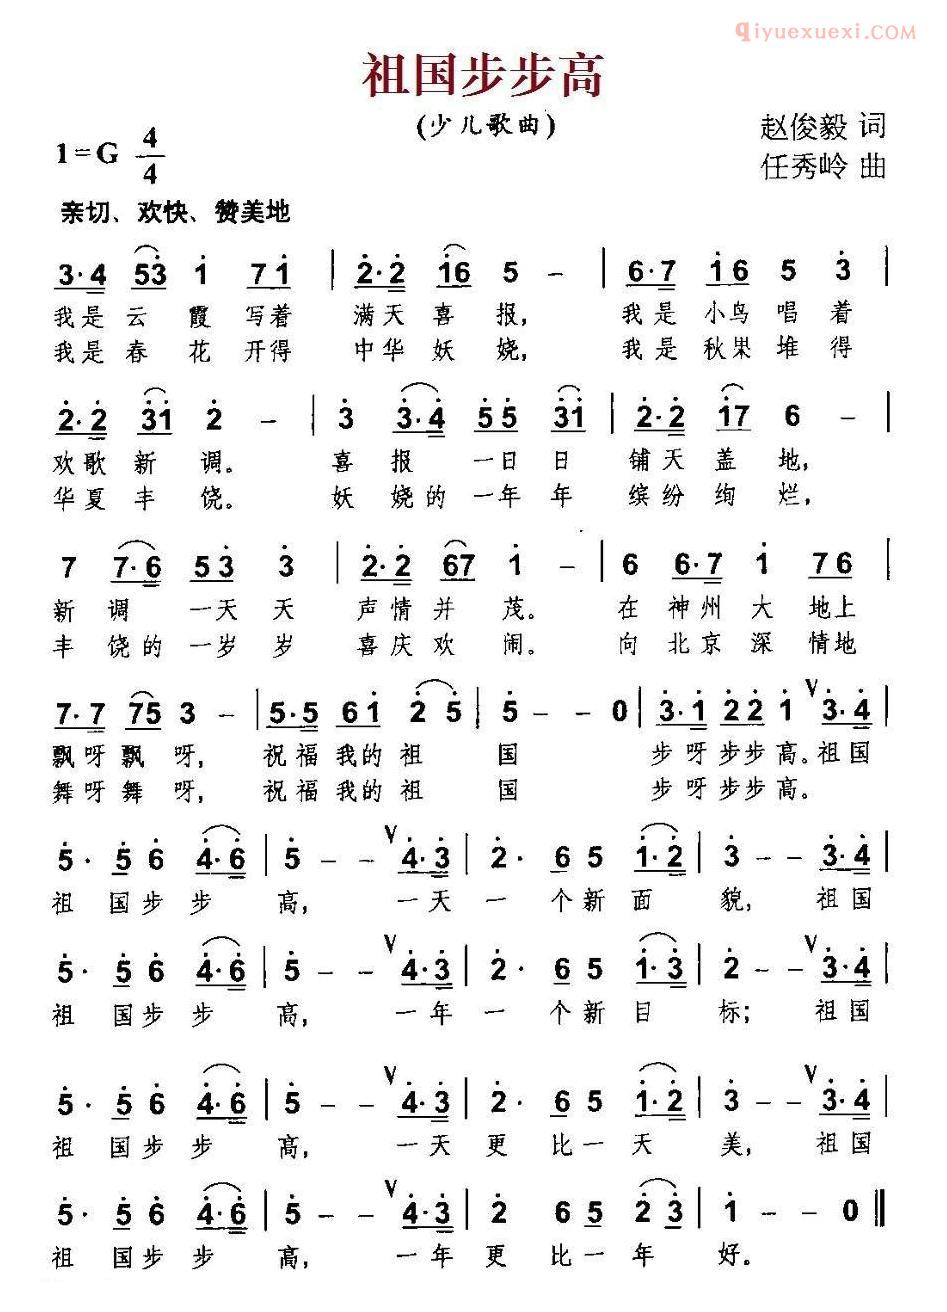 qiyuexuexi.COM
祖国步步高
(少儿歌曲)
赵俊毅 词
1=G 4/4
任秀岭 曲
亲切、欢快、赞美地
3·4 53 1 71 | 2·2 16 5 - | 6·7 16 5 3 |
我是云霞写着 满天喜报, 我是小鸟唱着
我是春花开得 中华妖娆, 我是秋果堆得
2·2 31 2 - | 3 3·4 55 31 | 2·2 17 6 - |
欢歌新调。 喜报一日日 铺天盖地,
华夏丰饶。 妖娆的一年年 缤纷绚烂,
7 7·6 53 3 | 2·2 67 1 - | 6 6·7 1 76 |
新调一天天 声情并茂。 在神州大地上
丰饶的一岁岁 喜庆欢闹。 向北京深情地
7·7 75 3 - | 5·5 61 2 5 | 5 - - 0 | 3·1 22 1 V 3·4 |
飘呀飘呀, 祝福我的祖国 步呀步步高。祖国
舞呀舞呀, 祝福我的祖国 步呀步步高。
5· 5 6 4·6 | 5 - - V 4·3 | 2· 6 5 1·2 | 3 - - 3·4 |
祖国步步高, 一天一个新面貌, 祖国
5· 5 6 4·6 | 5 - - V 4·3 | 2· 6 5 1·3 | 2 - - V 3·4 |
祖国步步高, 一年一个新目标; 祖国
5· 5 6 4·6 | 5 - - V 4·3 | 2· 6 5 1·2 | 3 - - V 3·4 |
祖国步步高, 一天更比一天美, 祖国
5· 5 6 4·6 | 5 - - V 4·3 | 2 6 5 2 3 | 1 - - 0 ‖
祖国步步高, 一年更比一年好。